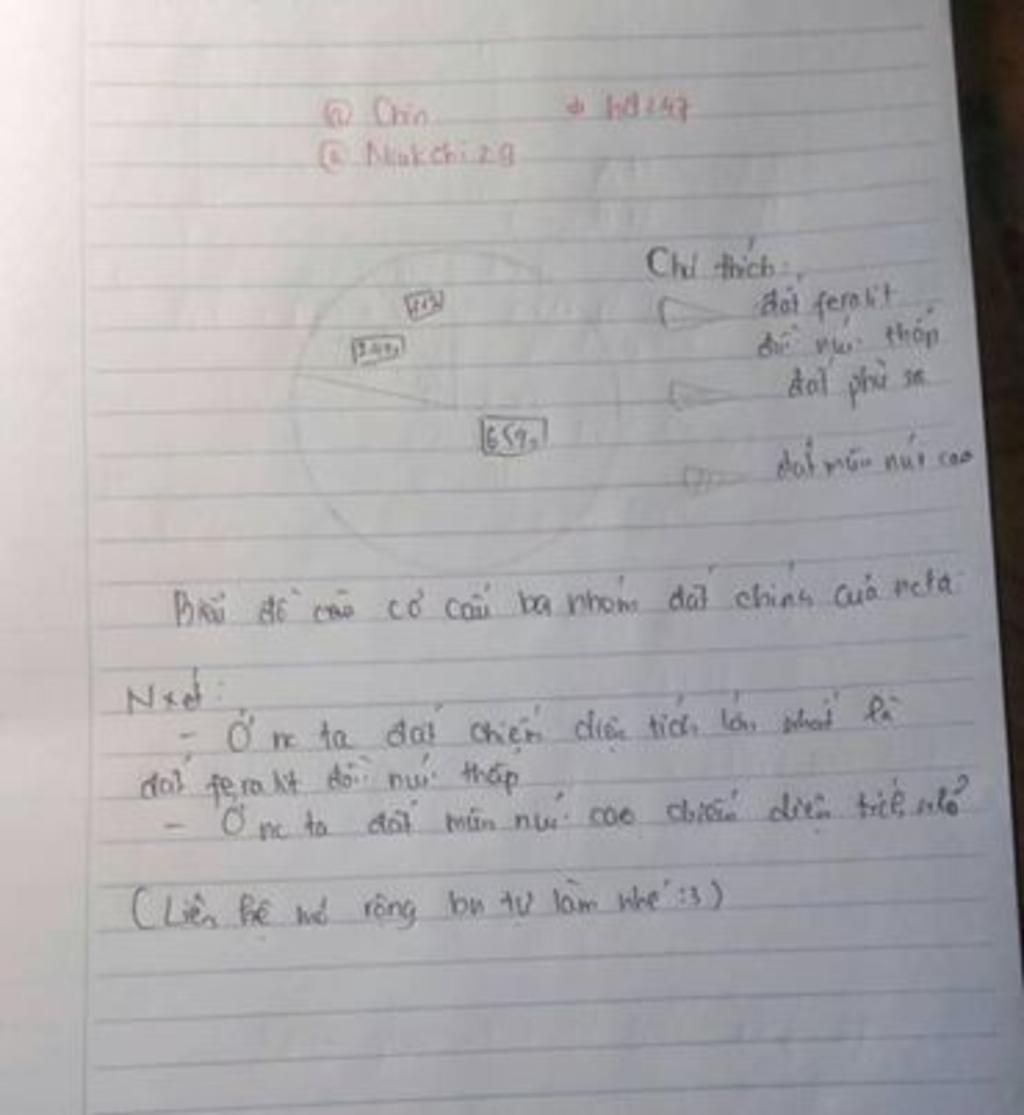 @ Chin
@ Niukchi 29
11%
24%
65%
Chú thích:
đất feralit
đồi núi thấp
đất phù sa
đất mùn núi cao
Biểu đồ cơ cấu ba nhóm đất chính của ncta
Nxét:
- Ở nc ta đất chiếm diện tích lớn nhất là
đất feralit đồi núi thấp
- Ở nc ta đất mùn núi cao chiếm diện tích nhỏ
(Liên hệ mở rộng bn tự làm nhé :3)